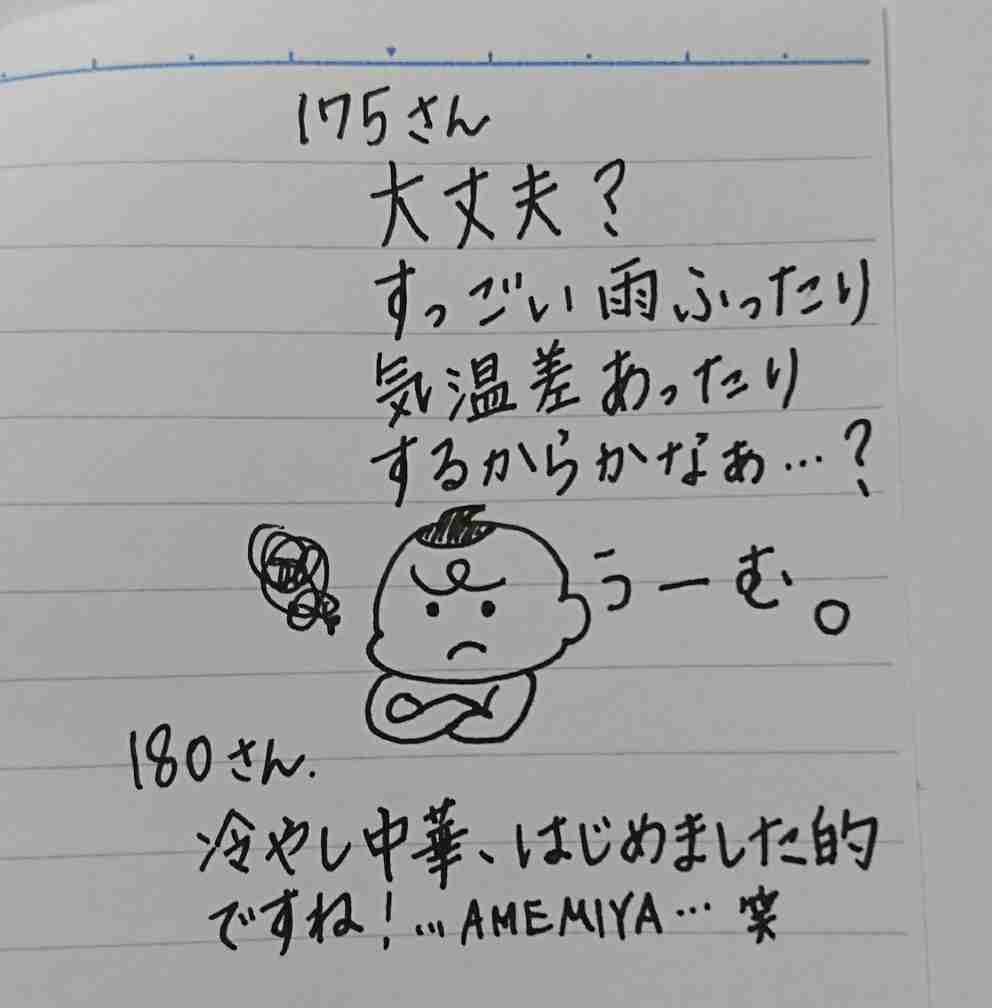 175さん
大丈夫?
すっごい雨ふったり
気温差あったり
するからかなぁ…?
うーむ。
180さん.
冷やし中華、はじめました的
ですね!…AMEMIYA…笑